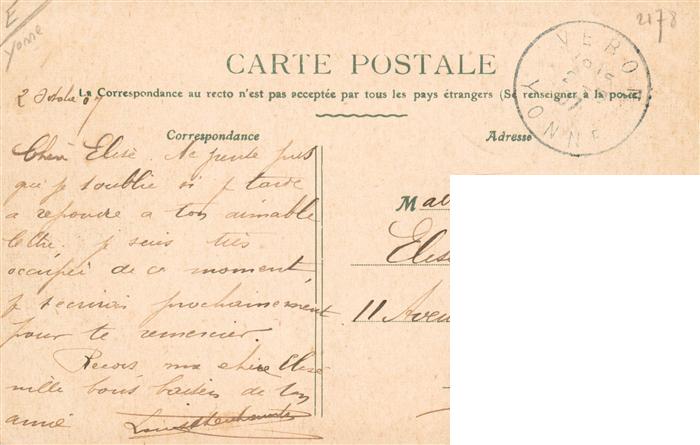 E
Yonne
2178
CARTE POSTALE
2 Octobre 07
La Correspondance au recto n'est pas acceptée par tous les pays étrangers (Se renseigner à la poste)
VERON
YONNE
Correspondance
Adresse
Chère Elise. Ne pense pas
que je t'oublie si je tarde
a repondre a ton aimable
lettre. je suis très
occupée de ce moment,
je t'ecrirai prochainement
pour te remercier.
Recois, ma chère Elise
mille bons baisers de ton
amie
Mad
Elise
11 Aven